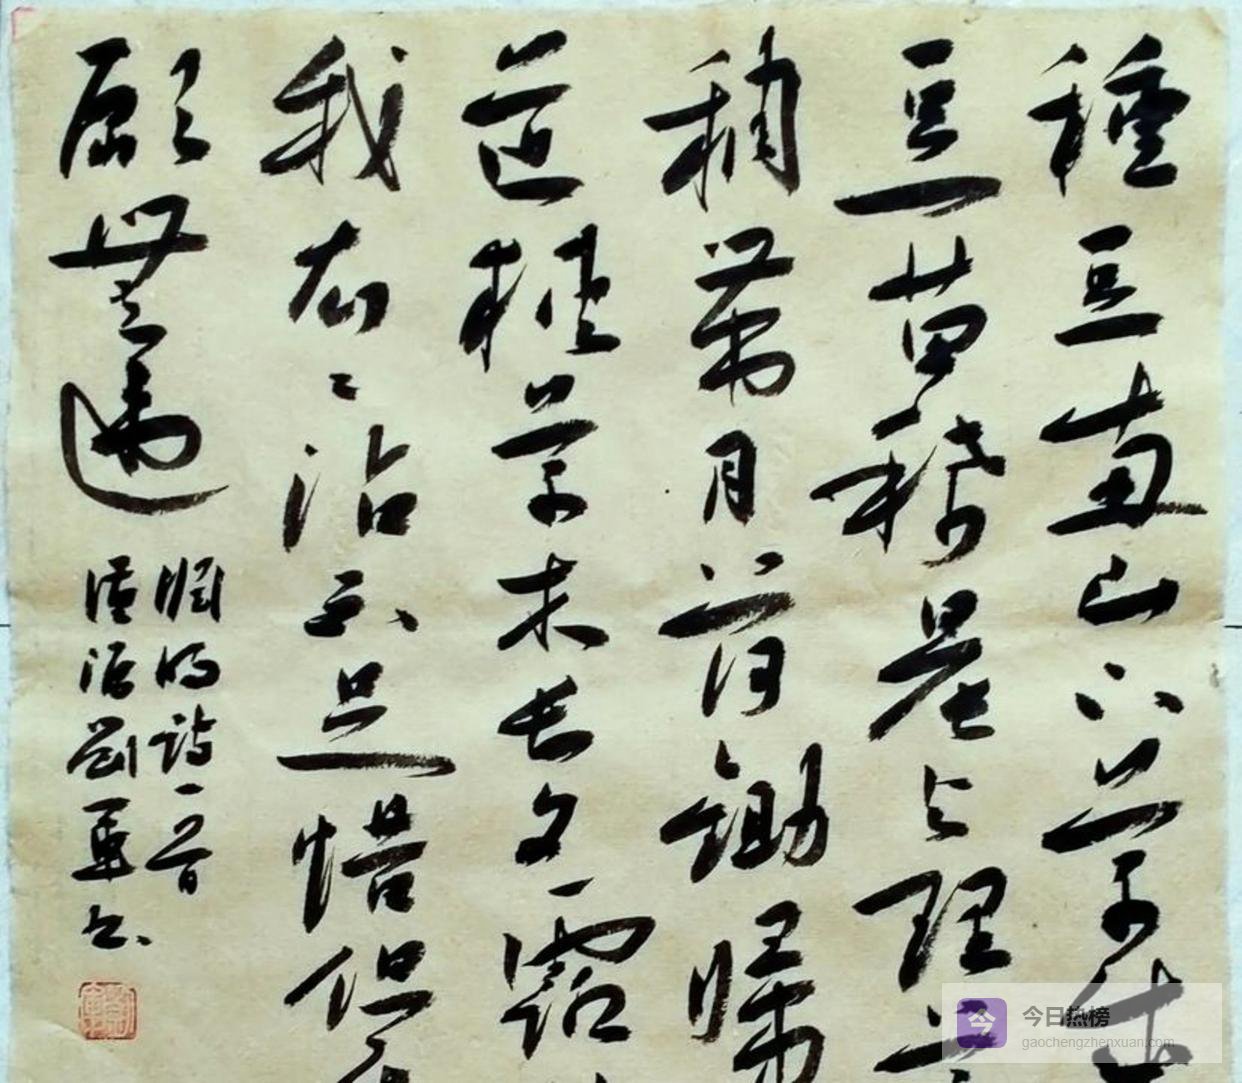 種豆南山下草盛
豆苗稀晨興理荒
穢帶月荷鋤歸
道狹草木長夕露
我衣々沾不足惜但
願無違
明詩一首
劉軍书
今日热榜
gaochengzhenxuan.com